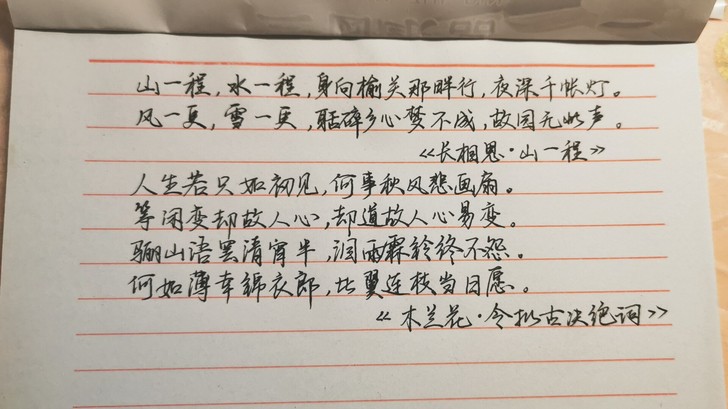 山一程，水一程，身向榆关那畔行，夜深千帐灯。
风一更，雪一更，聒碎乡心梦不成，故园无此声。
《长相思·山一程》
人生若只如初见，何事秋风悲画扇。
等闲变却故人心，却道故人心易变。
骊山语罢清宵半，泪雨霖铃终不怨。
何如薄幸锦衣郎，比翼连枝当日愿。
《木兰花·令拟古决绝词》